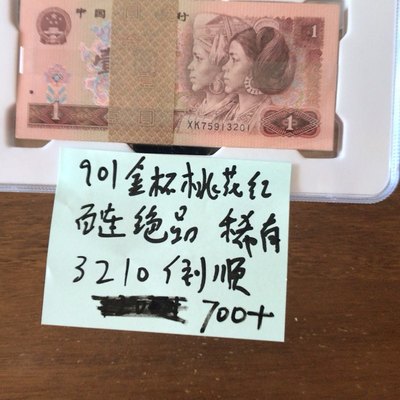 中国 银行
1
XK75913201
1
901金杯桃花红
百连绝品 稀有
3210倒顺
700+